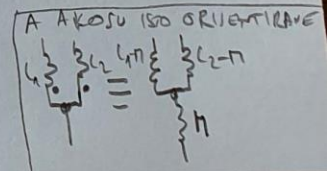 A AKOSU ISO ORIJENTIRANE
L1 L2 ≡ L1-M L2-M
M